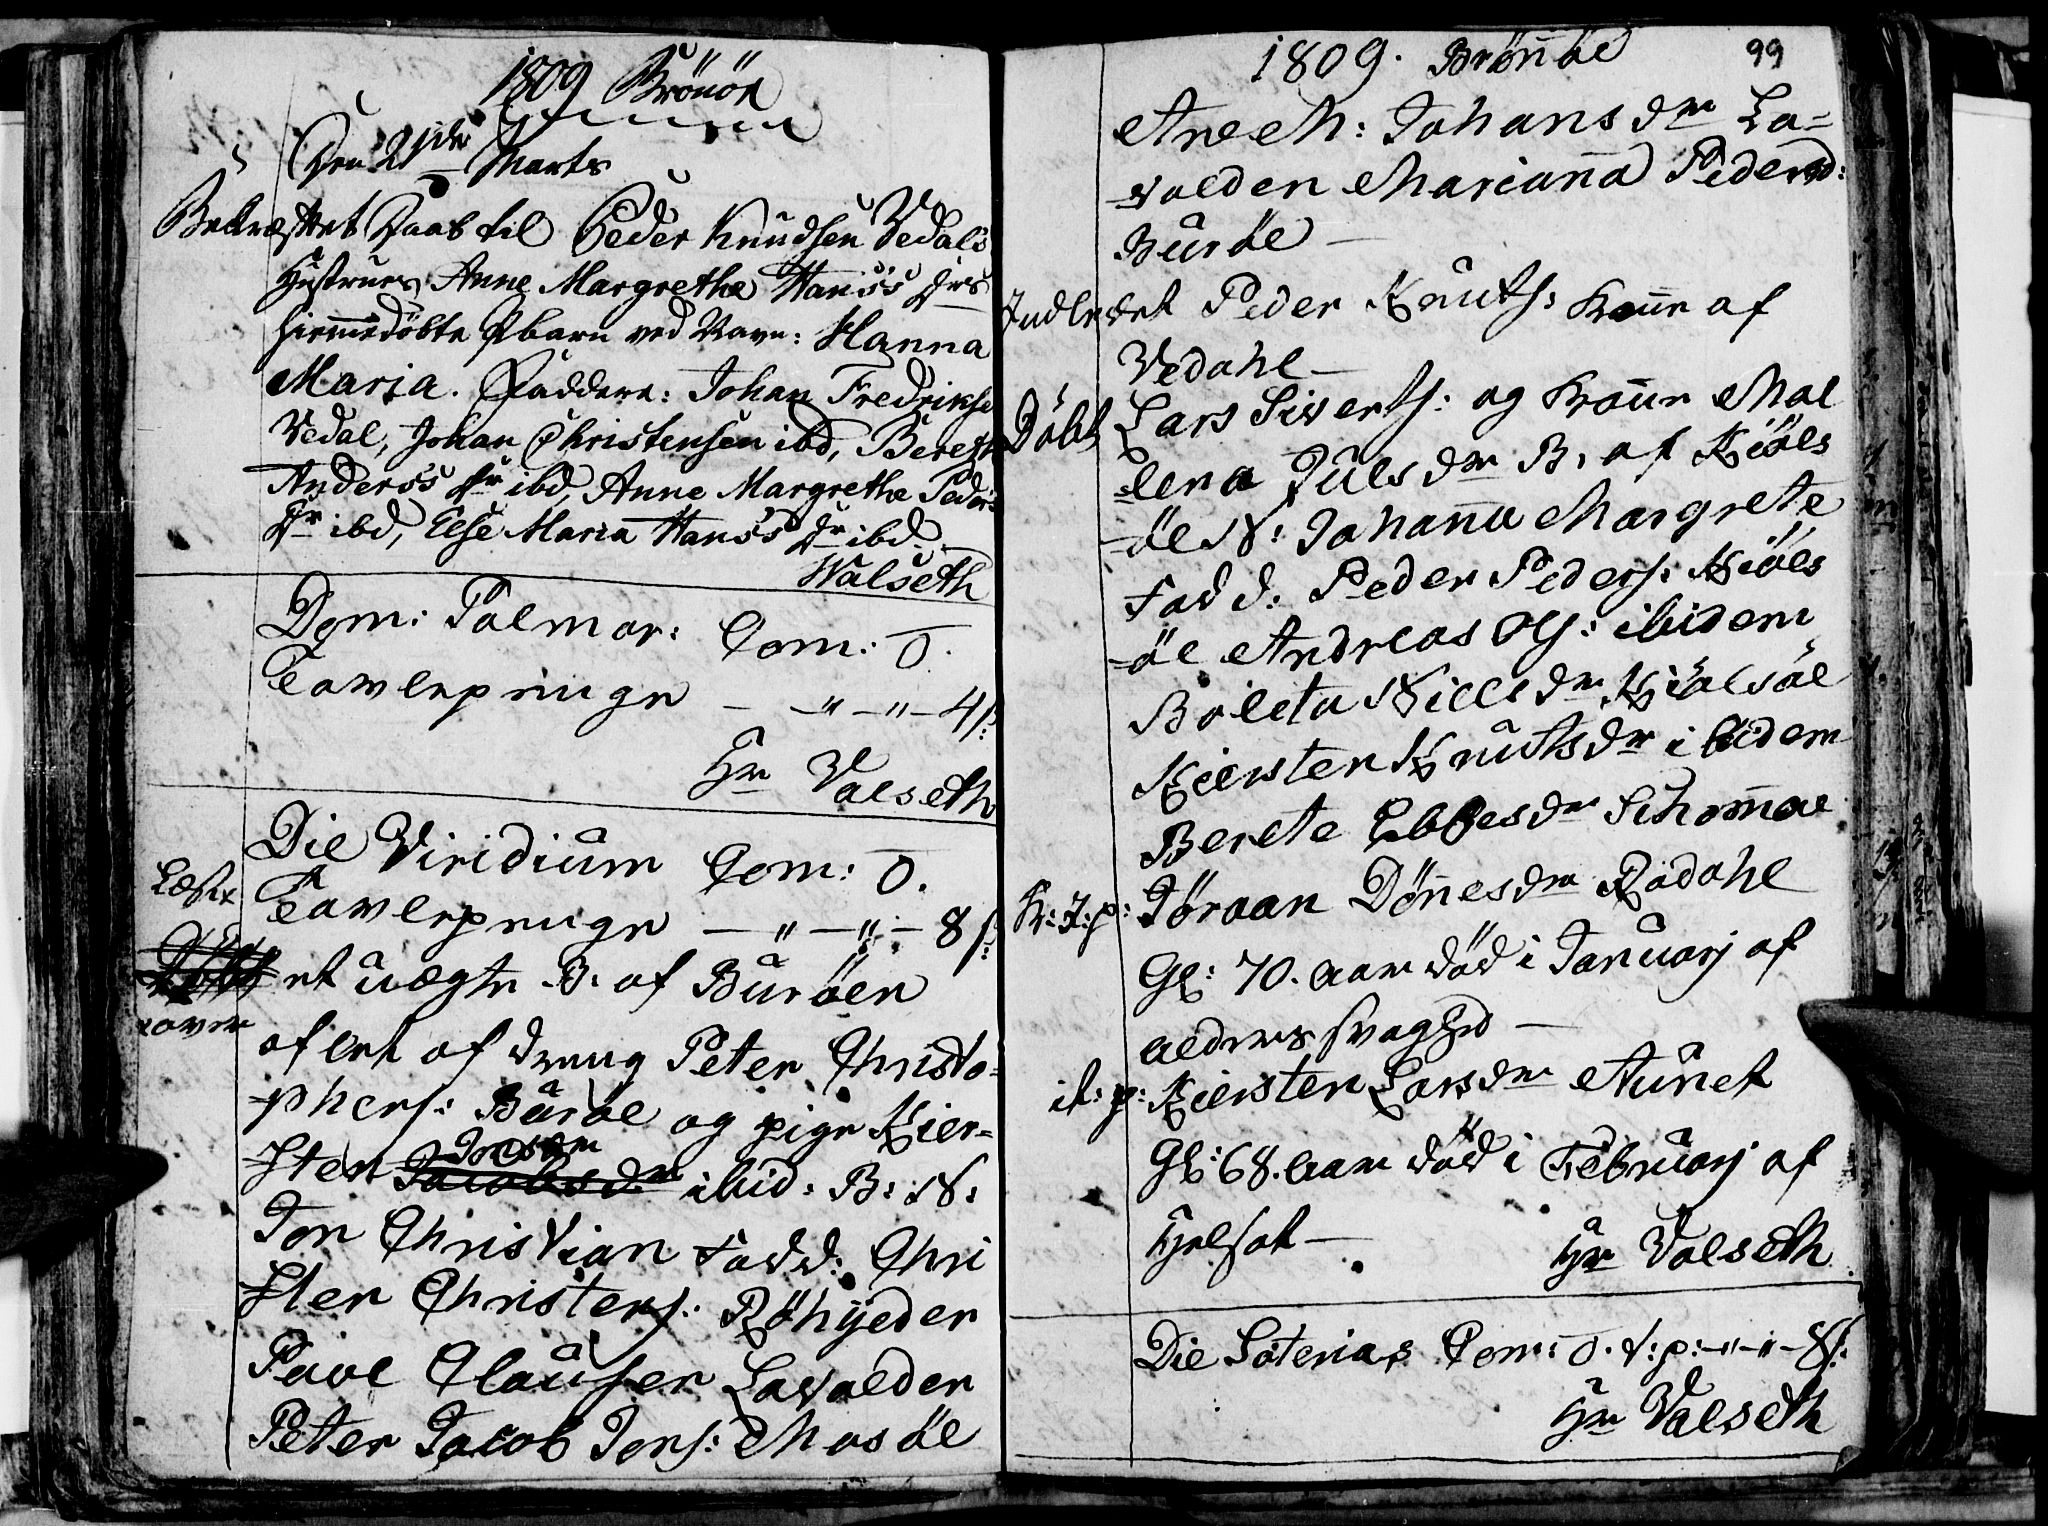 1809 Brönöe
Den 21de Marts
Bekræftet Daab til Peder Knudsen Vedals
Hustrues Anne Margrethe Hans's Drs
hiemmedöbte Pbarn ved Navn: Hanna
Maria. Faddere: Johan Fredrikse
Vedal, Johan Christensen ibd, Bereth
Anders's Dr ibd, Anne Margrethe Peders
Dr ibd, Else Maria Hans's Dr ibd.
Walseth
Dom: Palmar: Com: 0.
Tavlepenge - " - " - 4 s:
Hr Valseth
Die Viridium Com: 0.
Tavlepenge - " - " - 8 s:
et uægte B. af Buröen
aflet af dreng Peter Christo=
phers: Buröe og pige Kier=
sten Jonsdr Jacobsdr ibid: B: N:
Jon Christian Fadd: Chri
sten Christens: Röhyeden
Paul Clausen Lavolden
Peter Jacob Jons: Masöe
1809. Brönöe 99
Ane M: Johansdr La=
volden Mariana Pedersd:
Buröe —
Indledet Peder Knuts: Kone af
Vedahl —
Döbt Lars Siverts: og Kone Mal
lena Julsdr B. af Kiöls
öe N: Johanna Margrete
Fadd: Peder Peders: Kiöls
öe Andreas Ols: ibidem
Boleta Nielsdr Kiölsöe
Kiersten Knutsdr ibidem
Berete Ebbesdr Schomoe
K: J: p: Jöraan Dönesdr Rödahl
Gl: 70. aar död i Januarj af
alders svaghed —
it: p: Kiersten Larsdr Aunet
Gl: 68. aar död i Februarj af
Helsot —
Hr Valseth
Die Soterias Com: 0. t: p: - " - " - 8 s:
Hr Valseth